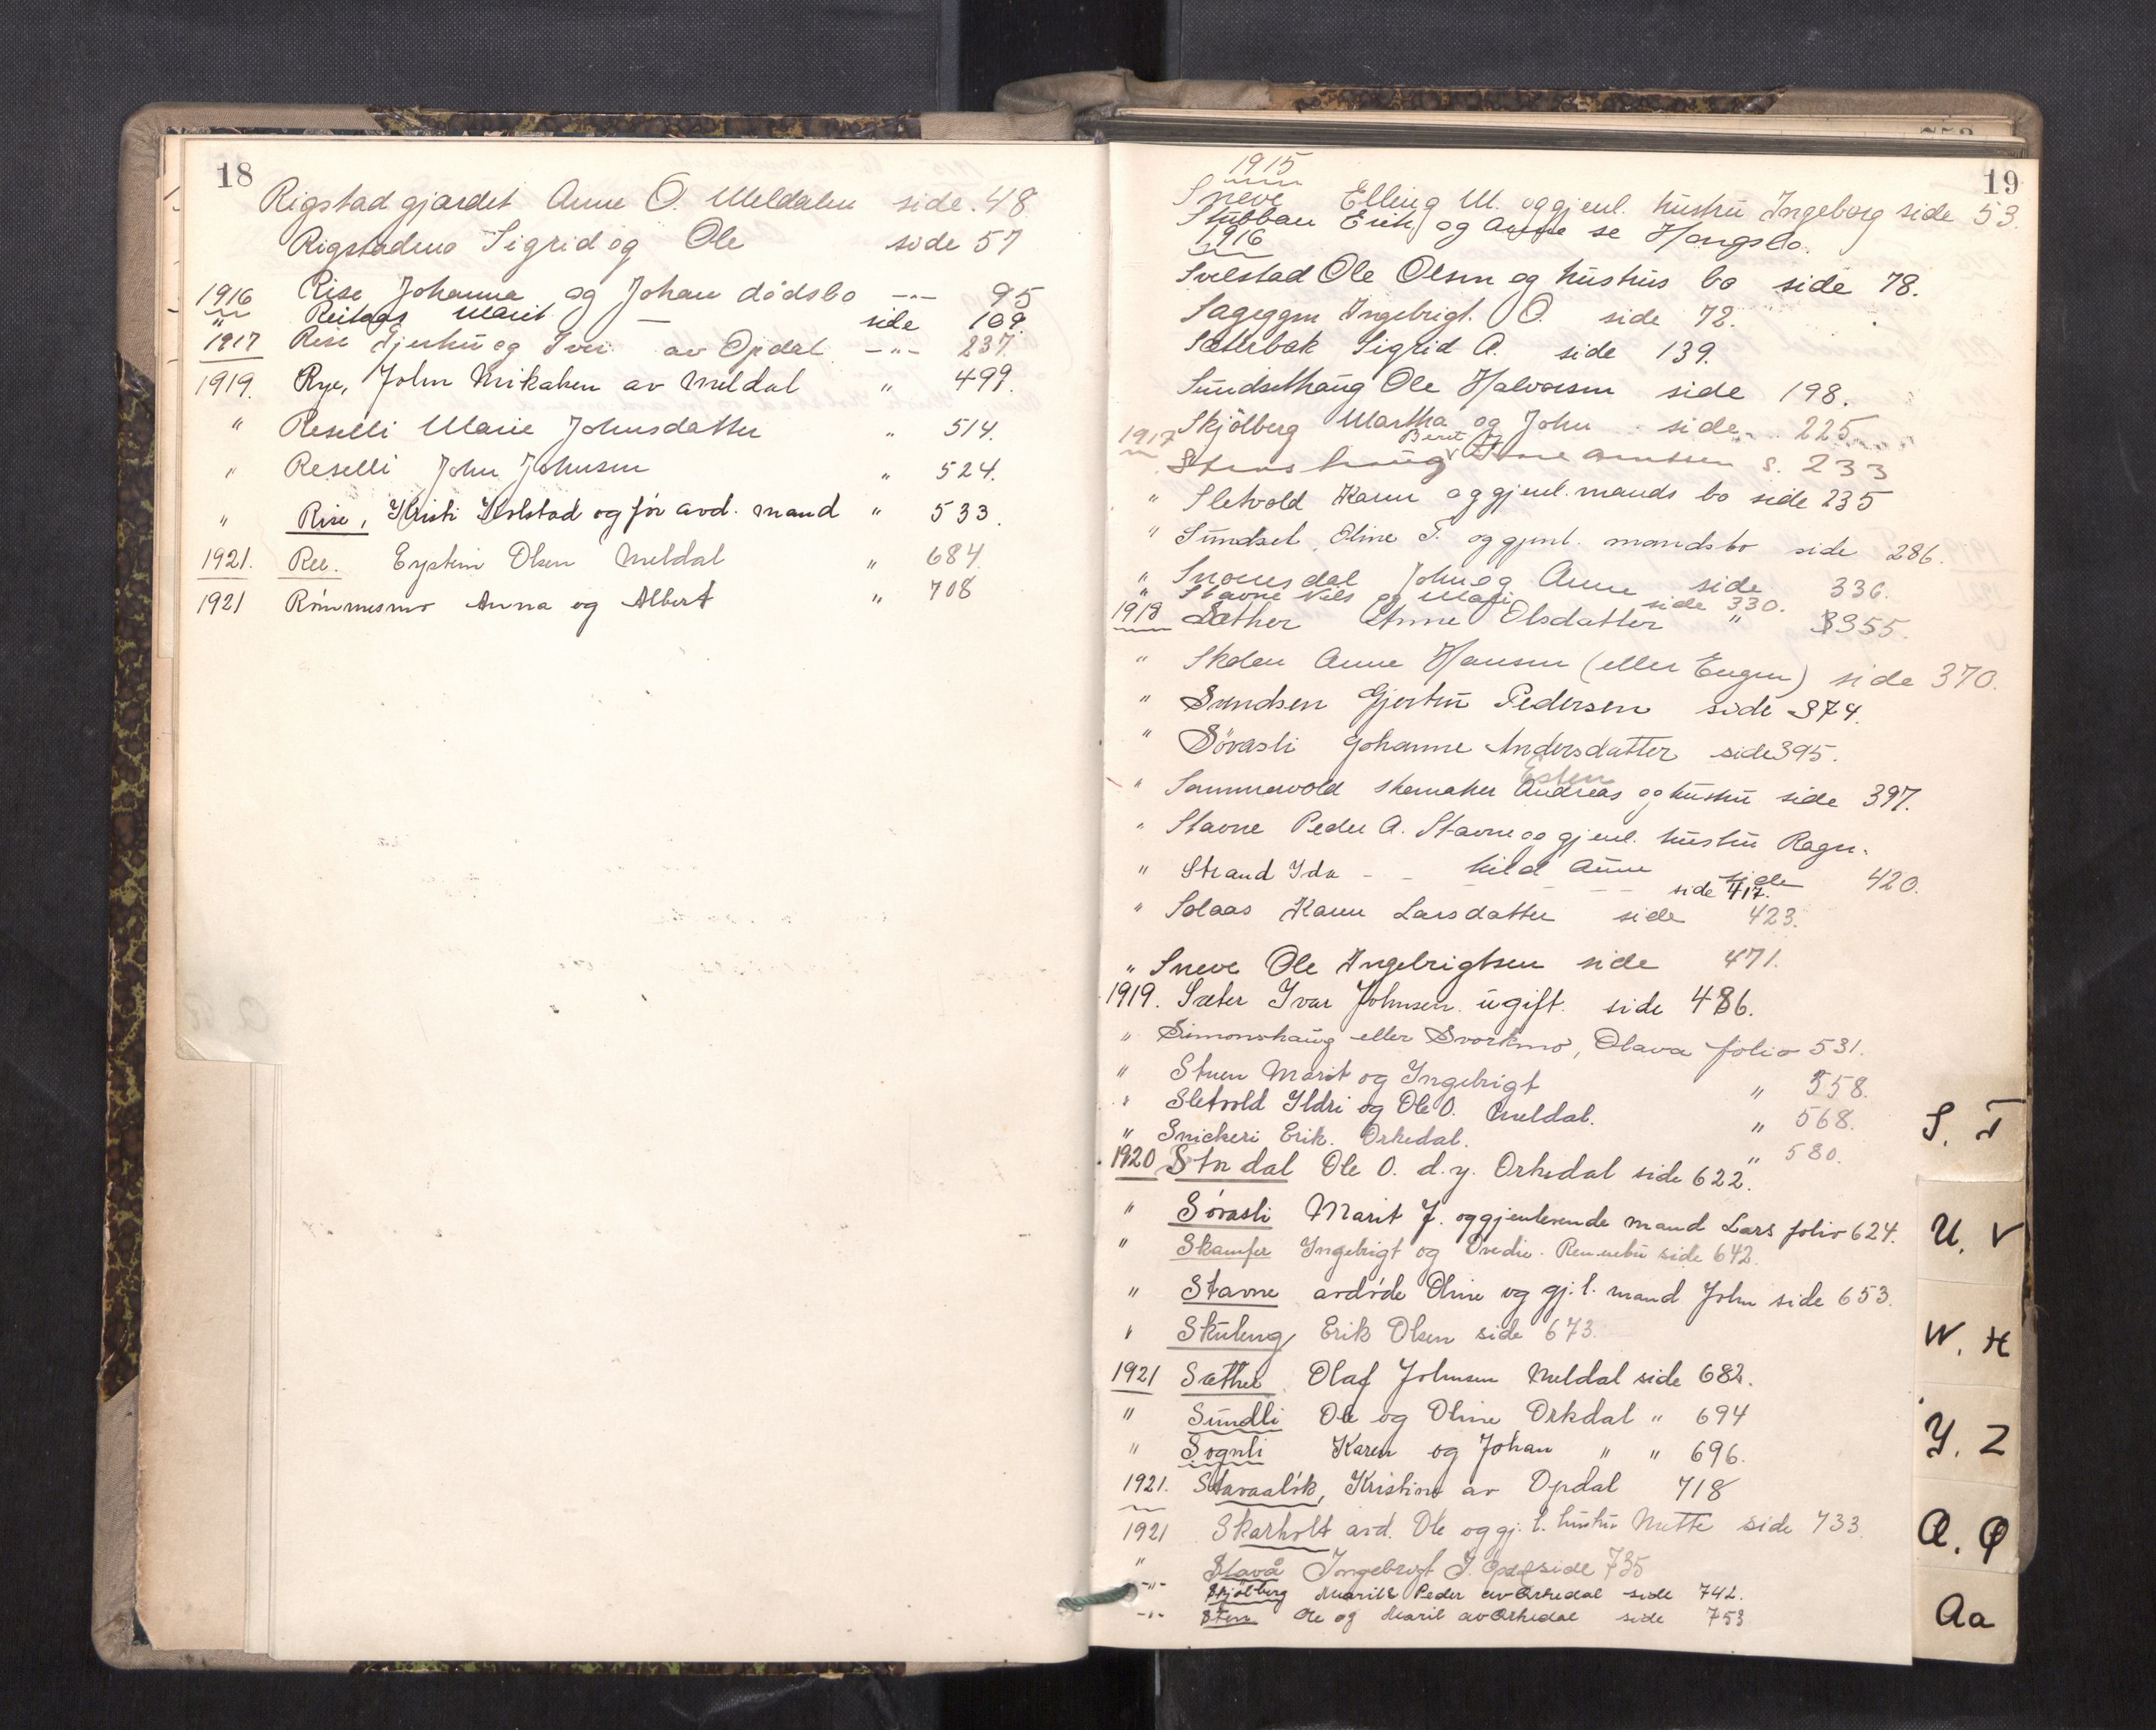 18
Rigstadgjærdet Anne O. Meldalen side 48
Rigstadmo Sigrid og Ole side 57
1916 Rise Johanna og Johan dödsbo -"- 95
" Marit — side 109.
1917 Rise og Iver av Opdal -"- 237.
1919. Rye, John Mikalsen av Meldal " 499.
" Reselli Marie Johnsdatter " 514.
" Reselli John Johnsen " 524.
" Rise, Kristi Kolstad og för avd. mand " 533.
1921. Ree. Eystein Olsen Meldal " 684.
1921 Römmesmo Anna og Albert " 708
19
1915
Sneve Elling M. og gjenl. hustru Ingeborg side 53.
Stubban Erik og Anne se Haugslo.
1916
Ole Olsen og hustrus bo side 78.
Sageggen Ingebrigt. O. side 72.
Sæterbak Sigrid A. side 139.
Sundsethaug Ole Halvorsen side 198.
Skjölberg Martha og John side 225
1917 Stenshaug Berit Arntsen s. 233
" Sletvold Karen og gjenl. mands bo side 235
" Sundset, Eline T. og gjenl. mandsbo side 286.
" Snoensdal John og Anne side 336.
" Stavne Nils og Mari side 330.
1918 Sæther Anne Olsdatter " 355.
" Skolen Anne Hansen (eller Engen) side 370.
" Svendsen Gjertru Pedersen side 374.
" Sövasli Johanne Andersdatter side 395.
Esten
" Sommervold skomaker Andreas og hustru side 397.
" Stavne Peder A. Stavne og gjenl. hustru Ragn-
hild Anne side 420.
" Strand Ida - - - - side 417.
" Solaas Karen Larsdatter side 423.
" Sneve Ole Ingebrigtsen side 471.
1919. Sæter Ivar Johnsen. ugift. side 486.
" Simonshaug eller Svorkmo, Olava folio 531.
" Stuen Marit og Ingebrigt " 558.
" Sletvold Ildri og Ole O. Meldal. " 568.
" Snickeri Erik. Orkedal. " 580.
1920 Stndal Ole O. d.y. Orkedal side 622.
" Sövasli Marit J. og gjenlevende mand Lars folio 624.
" Skamfer Ingebrigt og Rennebu side 642.
" Stavne avdöde Oline og gj.l. mand John side 653.
" Skuleng Erik Olsen side 673.
1921 Sæther Olaf Johnsen Meldal side 682.
" Sundli Ole og Oline Orkdal " 694
" Sognli Karen og Johan " " 696.
1921. Stavaalök, Kristine av Opdal 718
1921 Skarholt avd. Ole og gj. l. hustru Mette side 733.
" Stavå Ingebrigt J. Opdal side 735
-"- Skjölberg Marit & Peder av Orkedal side 742.
-"- Sten Ole og Marit av Orkedal side 753
S. T
U. V
W. H
Y. Z
Æ. Ø
Aa